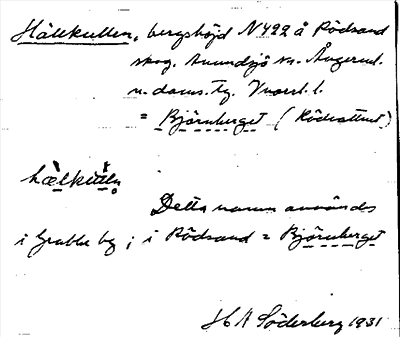 Hällkullen, bergshöjd N422 å Rödsand
skog. Anundsjö sn. Ångerml.
n. doms. tg. Vnorrl. l.
= Björnberget (Rödvattnet)
hælkùlln
Detta namn användes
i Grubbe by; i Rödsand = Björnberget
H A Söderberg 1931